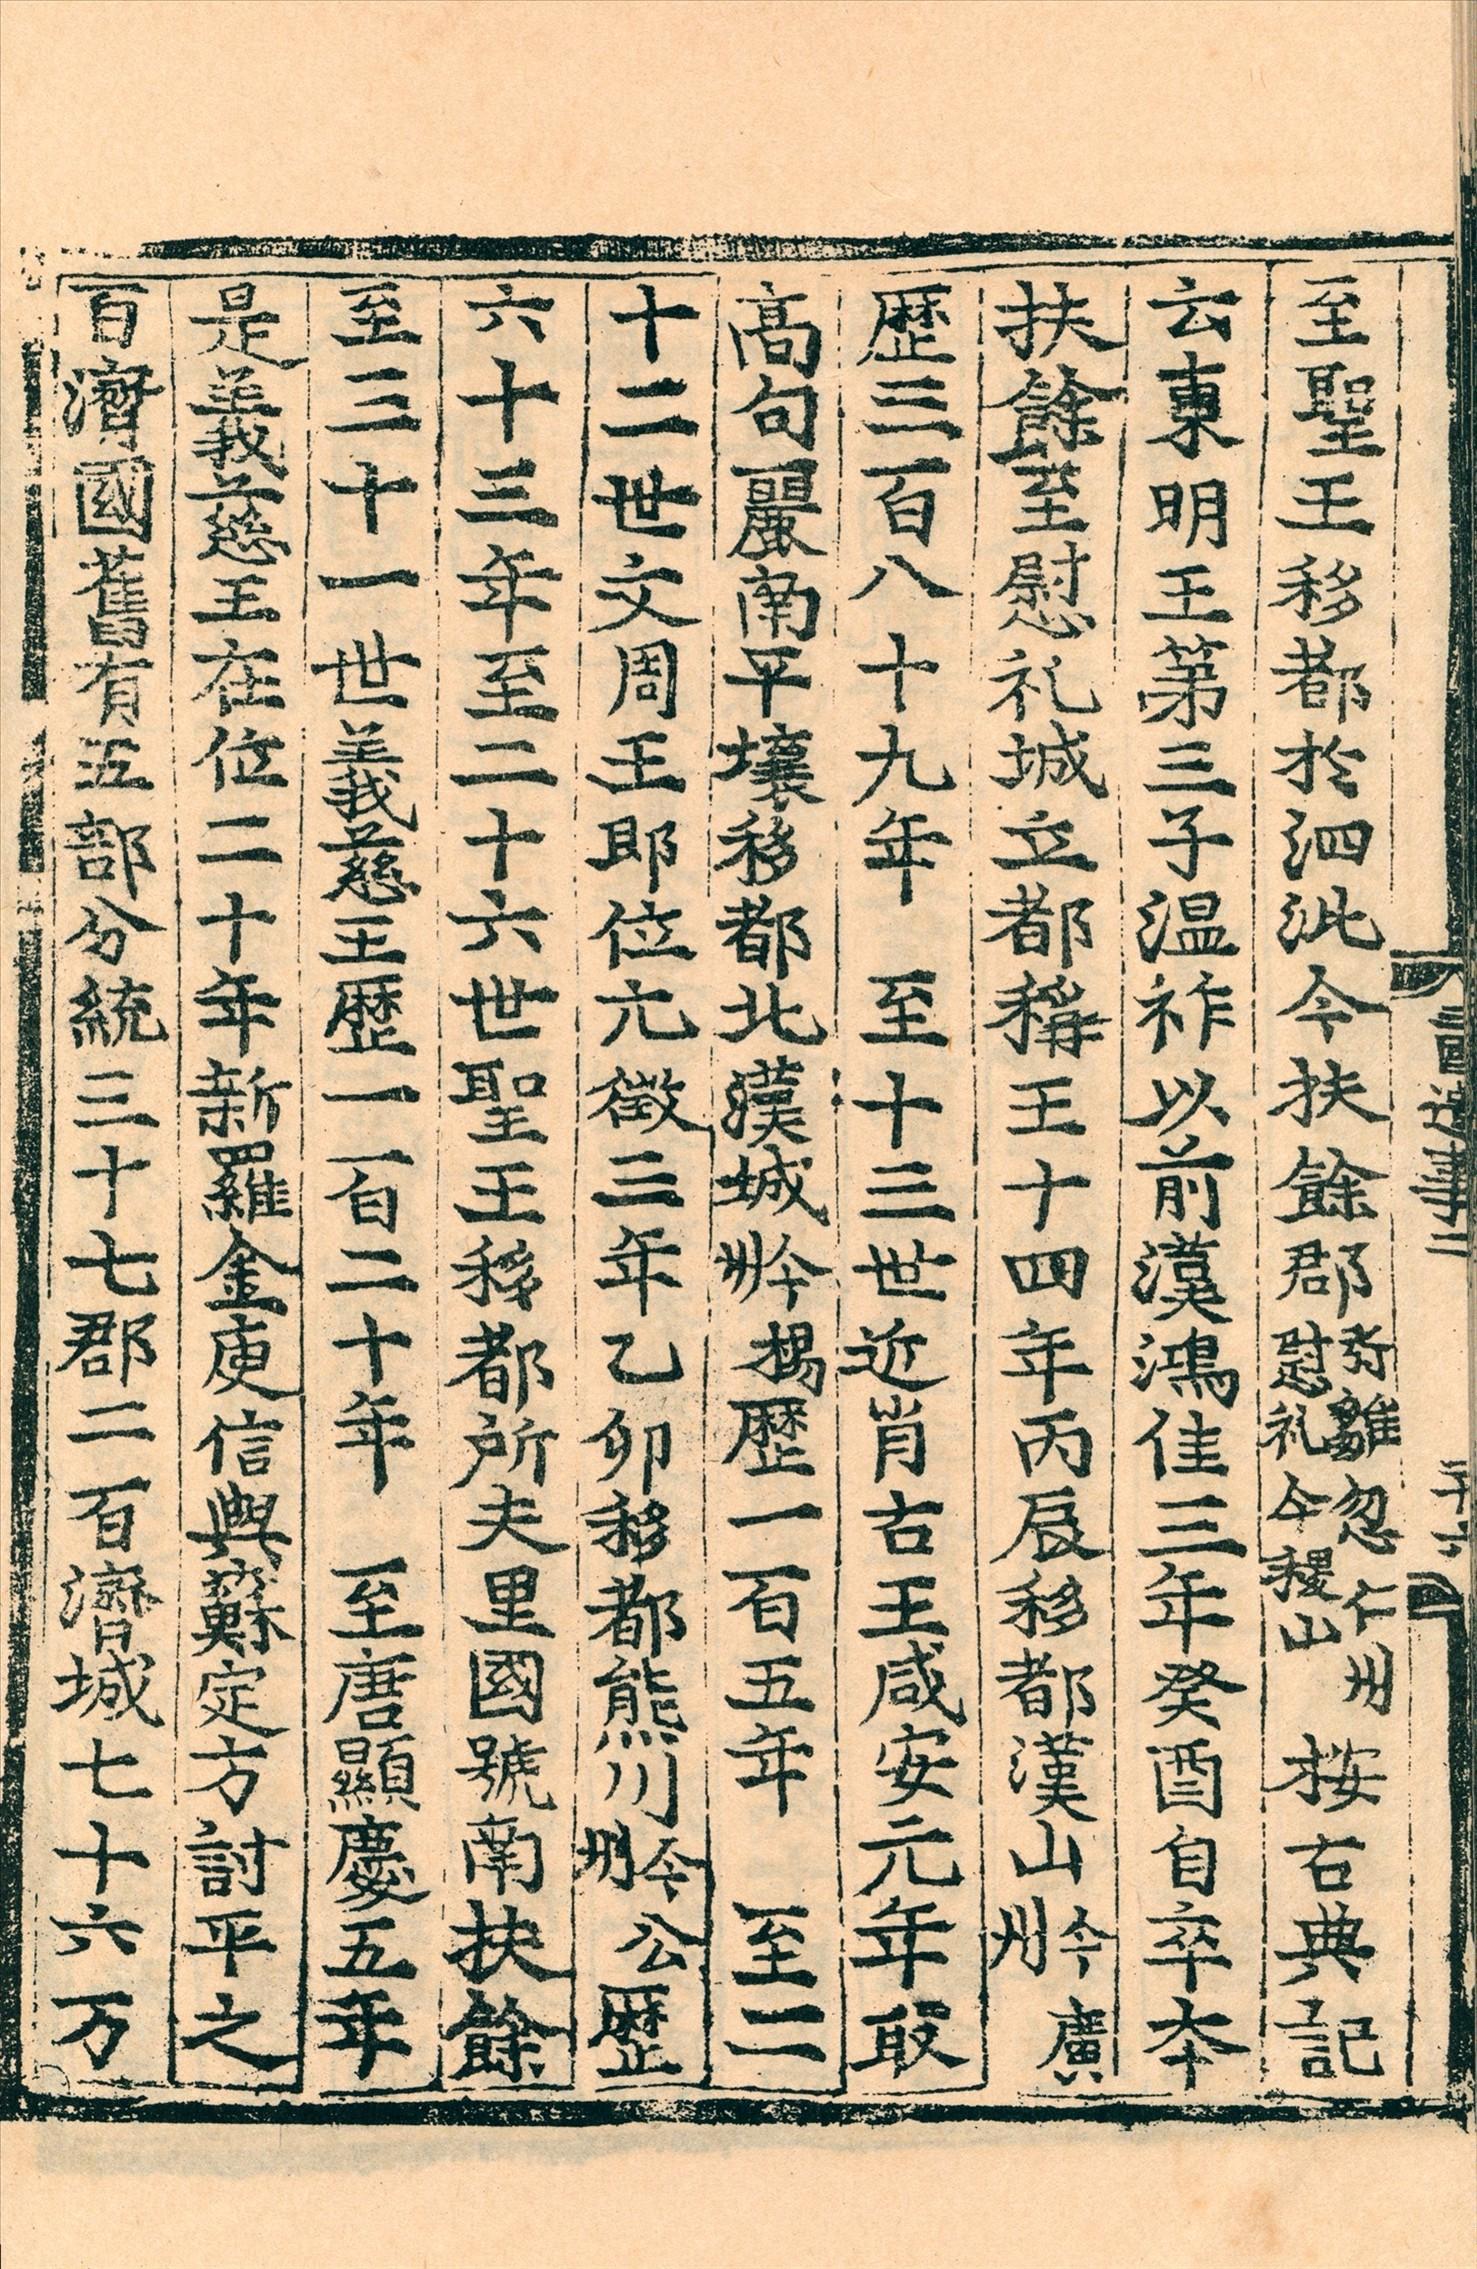 至聖王移都於泗沘今扶餘郡弥雛忽仁州慰礼今稷山 按古典記
云東明王第三子温祚以前漢鴻佳三年癸酉自卒本
扶餘至慰礼城立都稱王十四年丙辰移都漢山今廣州
歷三百八十九年 至十三世近肖古王咸安元年取
高句麗南平壤移都北漢城今楊州歷一百五年 至二
十二世文周王即位元徽三年乙卯移都熊川今公州歷
六十三年至二十六世聖王移都所夫里國號南扶餘
至三十一世義慈王歷一百二十年 至唐顯慶五年
是義慈王在位二十年新羅金庾信與蘇定方討平之
百濟國舊有五部分統三十七郡二百濟城七十六万